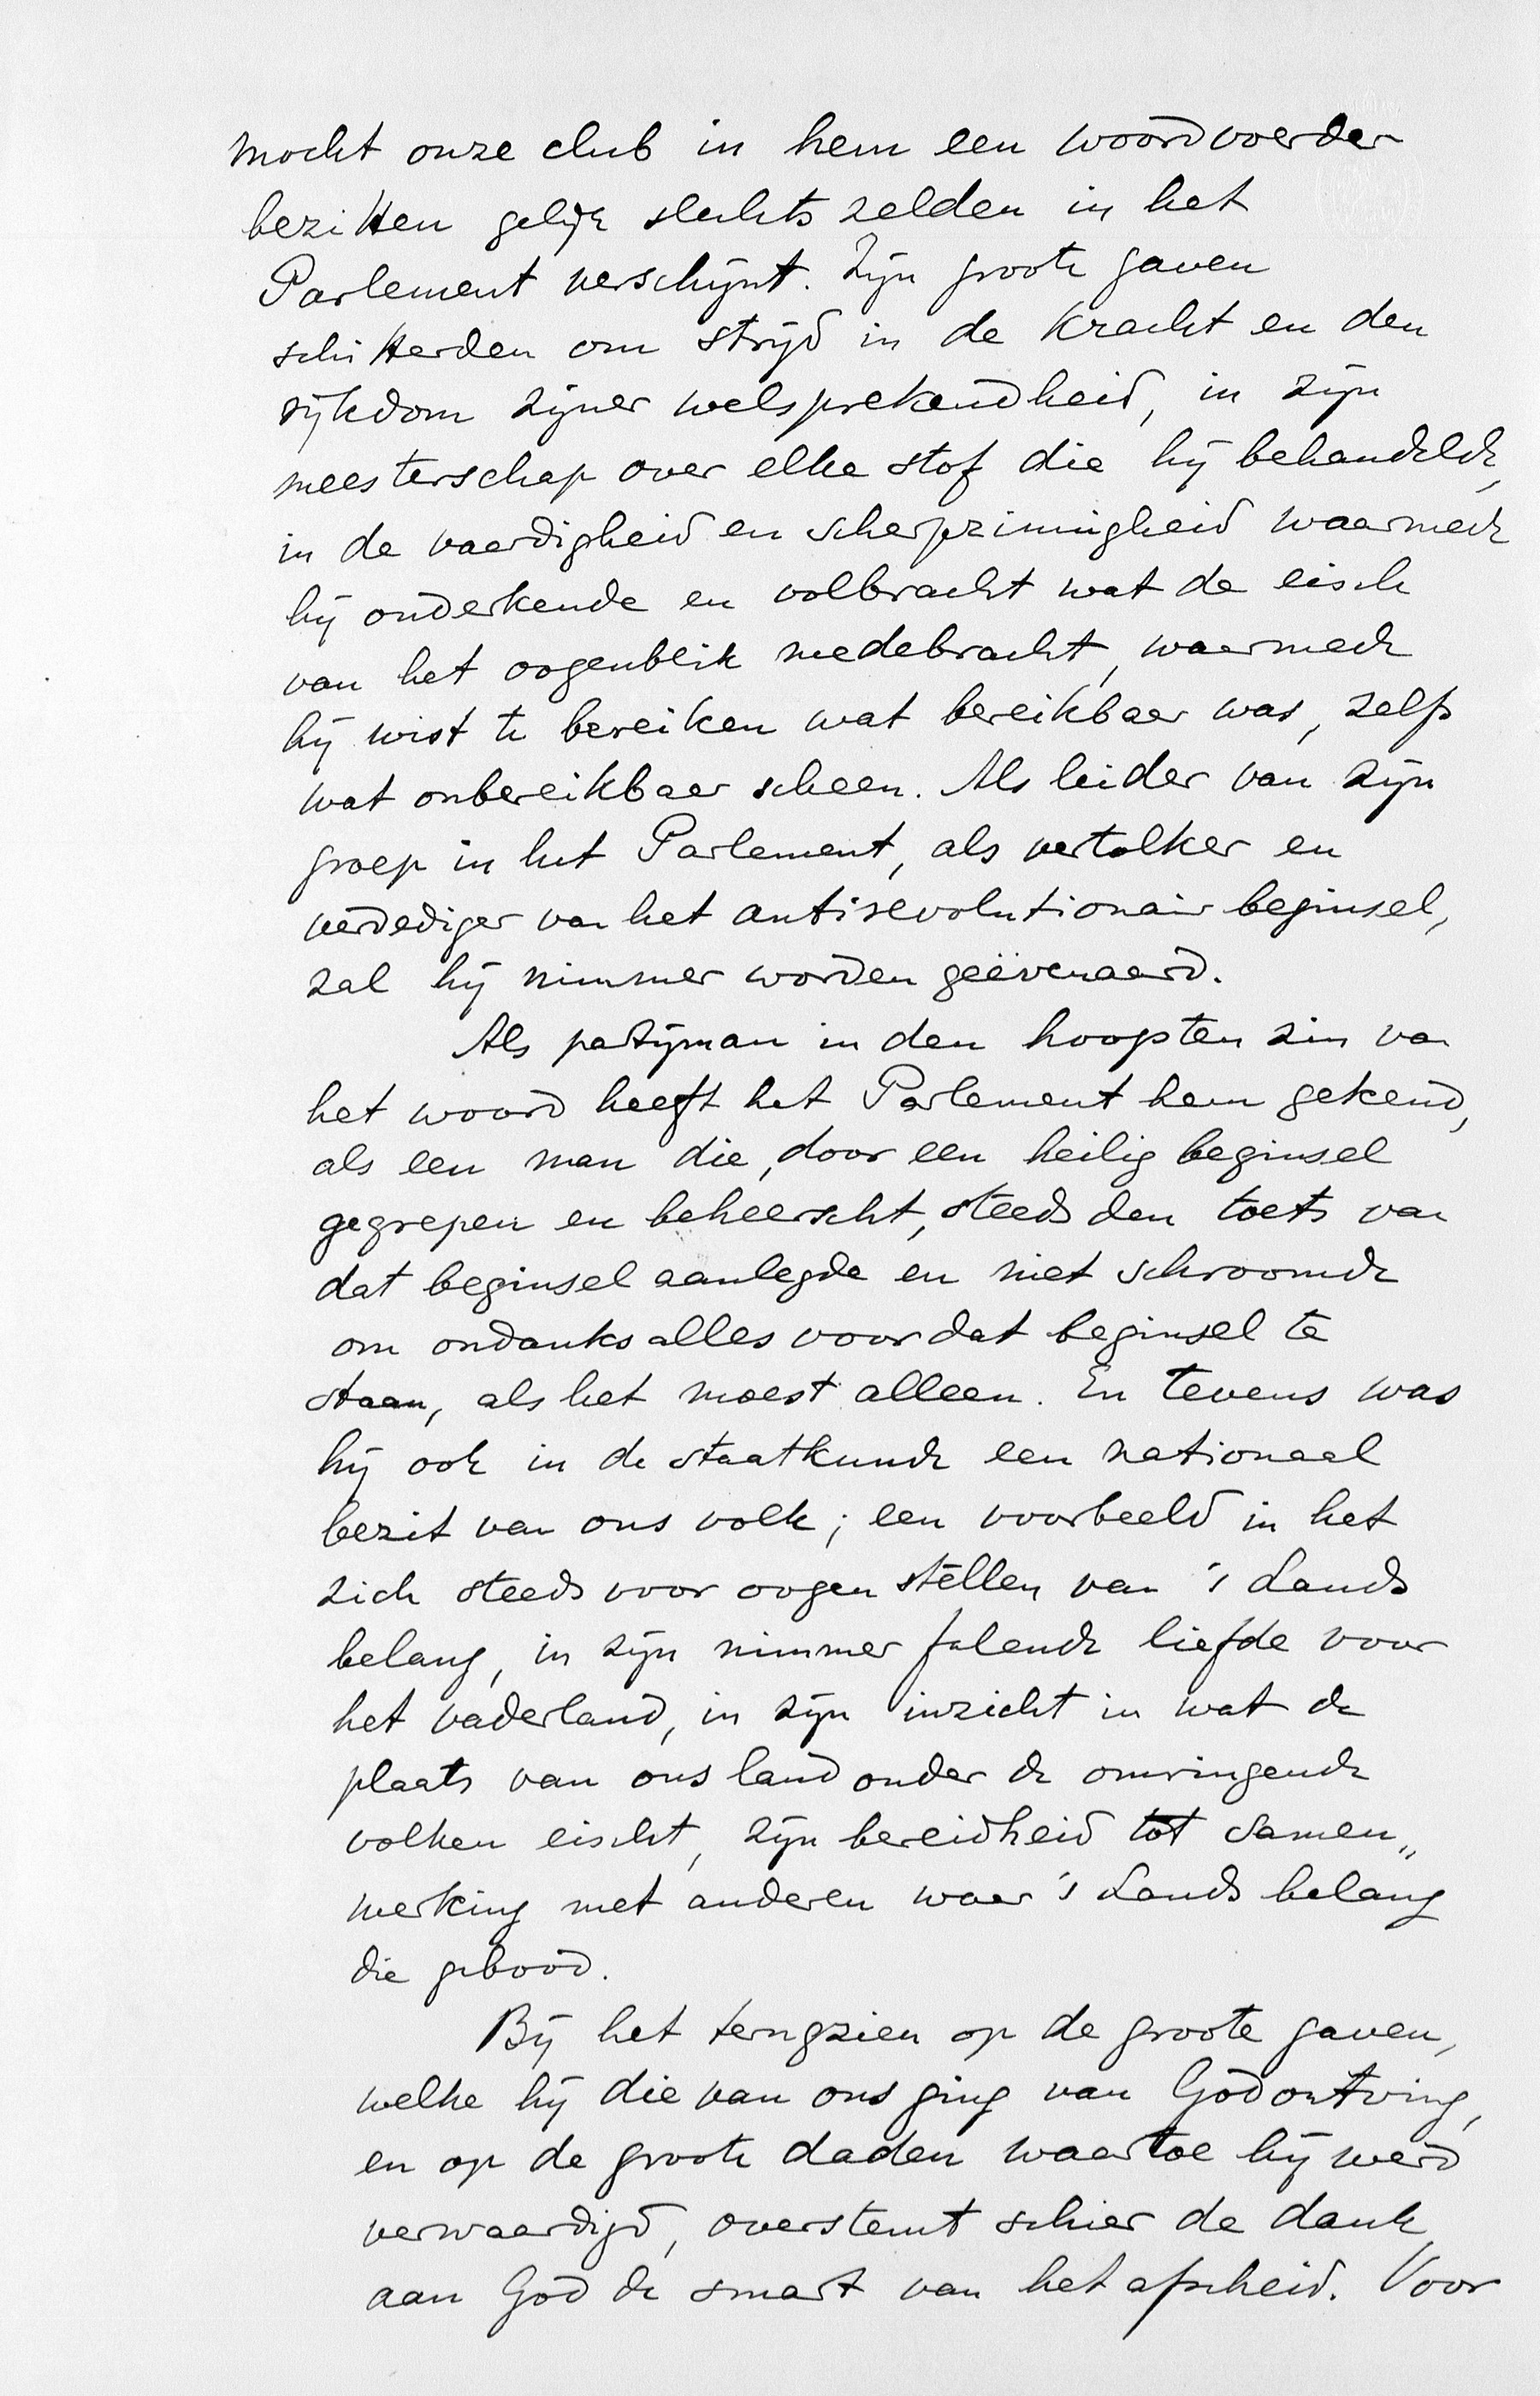 mocht onze club in hem een woordvoerder
bezitten gelijk slechts zelden in het
Parlement verschijnt. Zijn groote gaven
schitterden om strijd in de kracht en den
rijkdom zijner welsprekendheid, in zijn
meesterschap over elke stof die hij behandelde,
in de vaardigheid en scherpzinnigheid waarmede
hij onderkende en volbracht wat de eisch
van het oogenblik medebracht, waarmede
hij wist te bereiken wat bereikbaar was, zelfs
wat onbereikbaar scheen. Als leider van zijn
groep in het Parlement, als vertolker en
verdediger van het antirevolutionair beginsel,
zal hij nimmer worden geëvenaard.
Als partijman in den hoogsten zin van
het woord heeft het Parlement hem gekend,
als een man die, door een heilig beginsel
gegrepen en beheerscht, steeds den toets van
dat beginsel aanlegde en niet schroomde
om ondanks alles voor dat beginsel te
staan, als het moest alleen. En tevens was
hij ook in de staatkunde een nationaal
bezit van ons volk; een voorbeeld in het
zich steeds voor oogen stellen van 's Lands
belang, in zijn nimmer falende liefde voor
het vaderland, in zijn inzicht in wat de
plaats van ons land onder de omringende
volken eischt, zijn bereidheid tot samen„
werking met anderen waar 's Lands belang
die gebood.
Bij het terugzien op de groote gaven,
welke hij die van ons ging van God ontving,
en op de groote daden waartoe hij werd
verwaardigd, overstemt schier de dank
aan God de smart van het afscheid. Voor